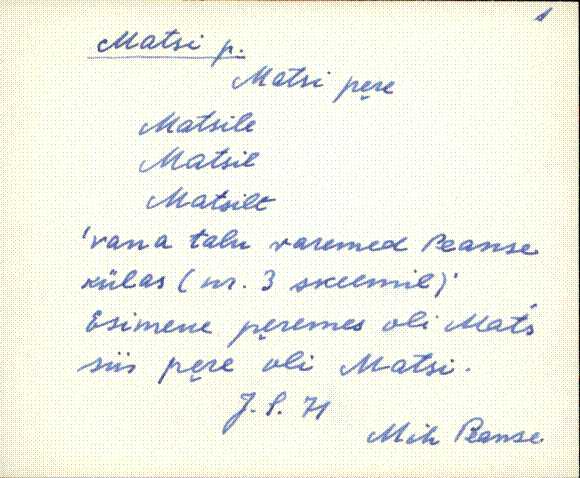 1
Matsi p.
Matsi pęre
Matsile
Matsil
Matsilt
'vana talu varemed Peanse
külas (nr. 3 skeemil)'
Esimene pęremes oli Mat's
siis pęre oli Matsi.
J. S. 71
Mih Peanse